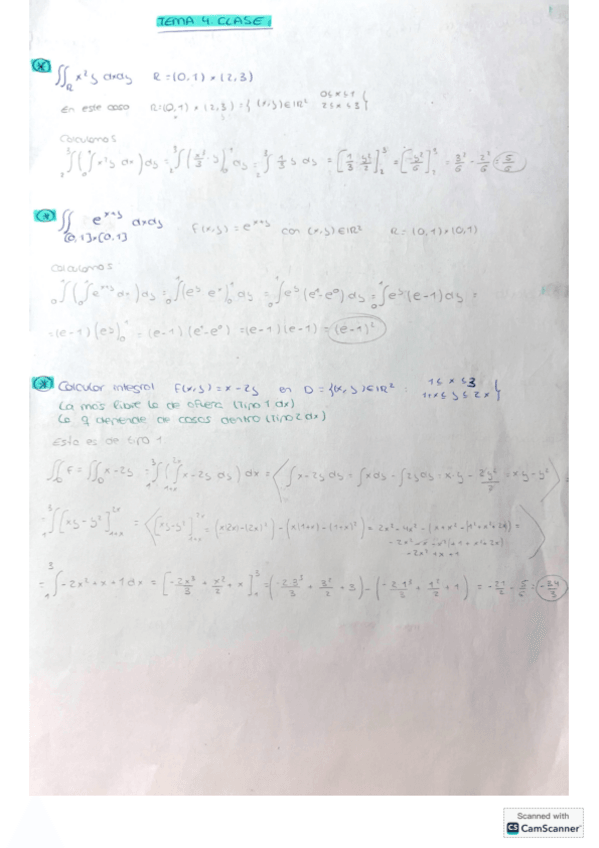 TEMA 4. CLASE 1
∬_R x²y dxdy R = (0,1) × (2,3)
En este caso R = (0,1) × (2,3) = { (x,y) ∈ ℝ² 0 ≤ x ≤ 1 2 ≤ y ≤ 3 }
Calculamos
₂∫³ (₀∫¹ x²y dx) dy = ₂∫³ (x³/3 · y)₀¹ dy = ₂∫³ 1/3 y dy = [1/3 · y²/2]₂³ = [y²/6]₂³ = 3²/6 - 2²/6 = 5/6
∬_[0,1]×[0,1] e^(x+y) dxdy F(x,y) = e^(x+y) con (x,y) ∈ ℝ² R = (0,1) × (0,1)
Calculamos
₀∫¹ (₀∫¹ e^(x+y) dx) dy = ₀∫¹ (e^y e^x)₀¹ dy = ₀∫¹ e^y (e¹ - e⁰) dy = ₀∫¹ e^y (e-1) dy =
= (e-1) (e^y)₀¹ = (e-1) (e¹ - e⁰) = (e-1) (e-1) = (e-1)²
Calcular integral F(x,y) = x - 2y en D = {(x,y) ∈ ℝ² : 1 ≤ x ≤ 3 1+x ≤ y ≤ 2x }
La más libre la de afuera (tipo 1 dx)
La q depende de cosas dentro (tipo 2 dx)
Esto es de tipo 1
∬_D F = ∬_D x - 2y = ₁∫³ (∫_(1+x)^(2x) x - 2y dy) dx = ⟨ ∫ x - 2y dy = ∫ x dy - ∫ 2y dy = x·y - 2y²/2 = xy - y² ⟩
= ₁∫³ [xy - y²]_(1+x)^(2x) = ⟨ [xy - y²]_(1+x)^(2x) = (x(2x) - (2x)²) - (x(1+x) - (1+x)²) = 2x² - 4x² - (x + x² - (1² + x² + 2x)) =
- 2x² - x - x² + 1 + x² + 2x)
- 2x² + x + 1 ⟩
= ₁∫³ - 2x² + x + 1 dx = [- 2x³/3 + x²/2 + x]₁³ = (- 2·3³/3 + 3²/2 + 3) - (- 2·1³/3 + 1²/2 + 1) = - 21/2 - 5/6 = - 34/3
Scanned with
CS CamScanner